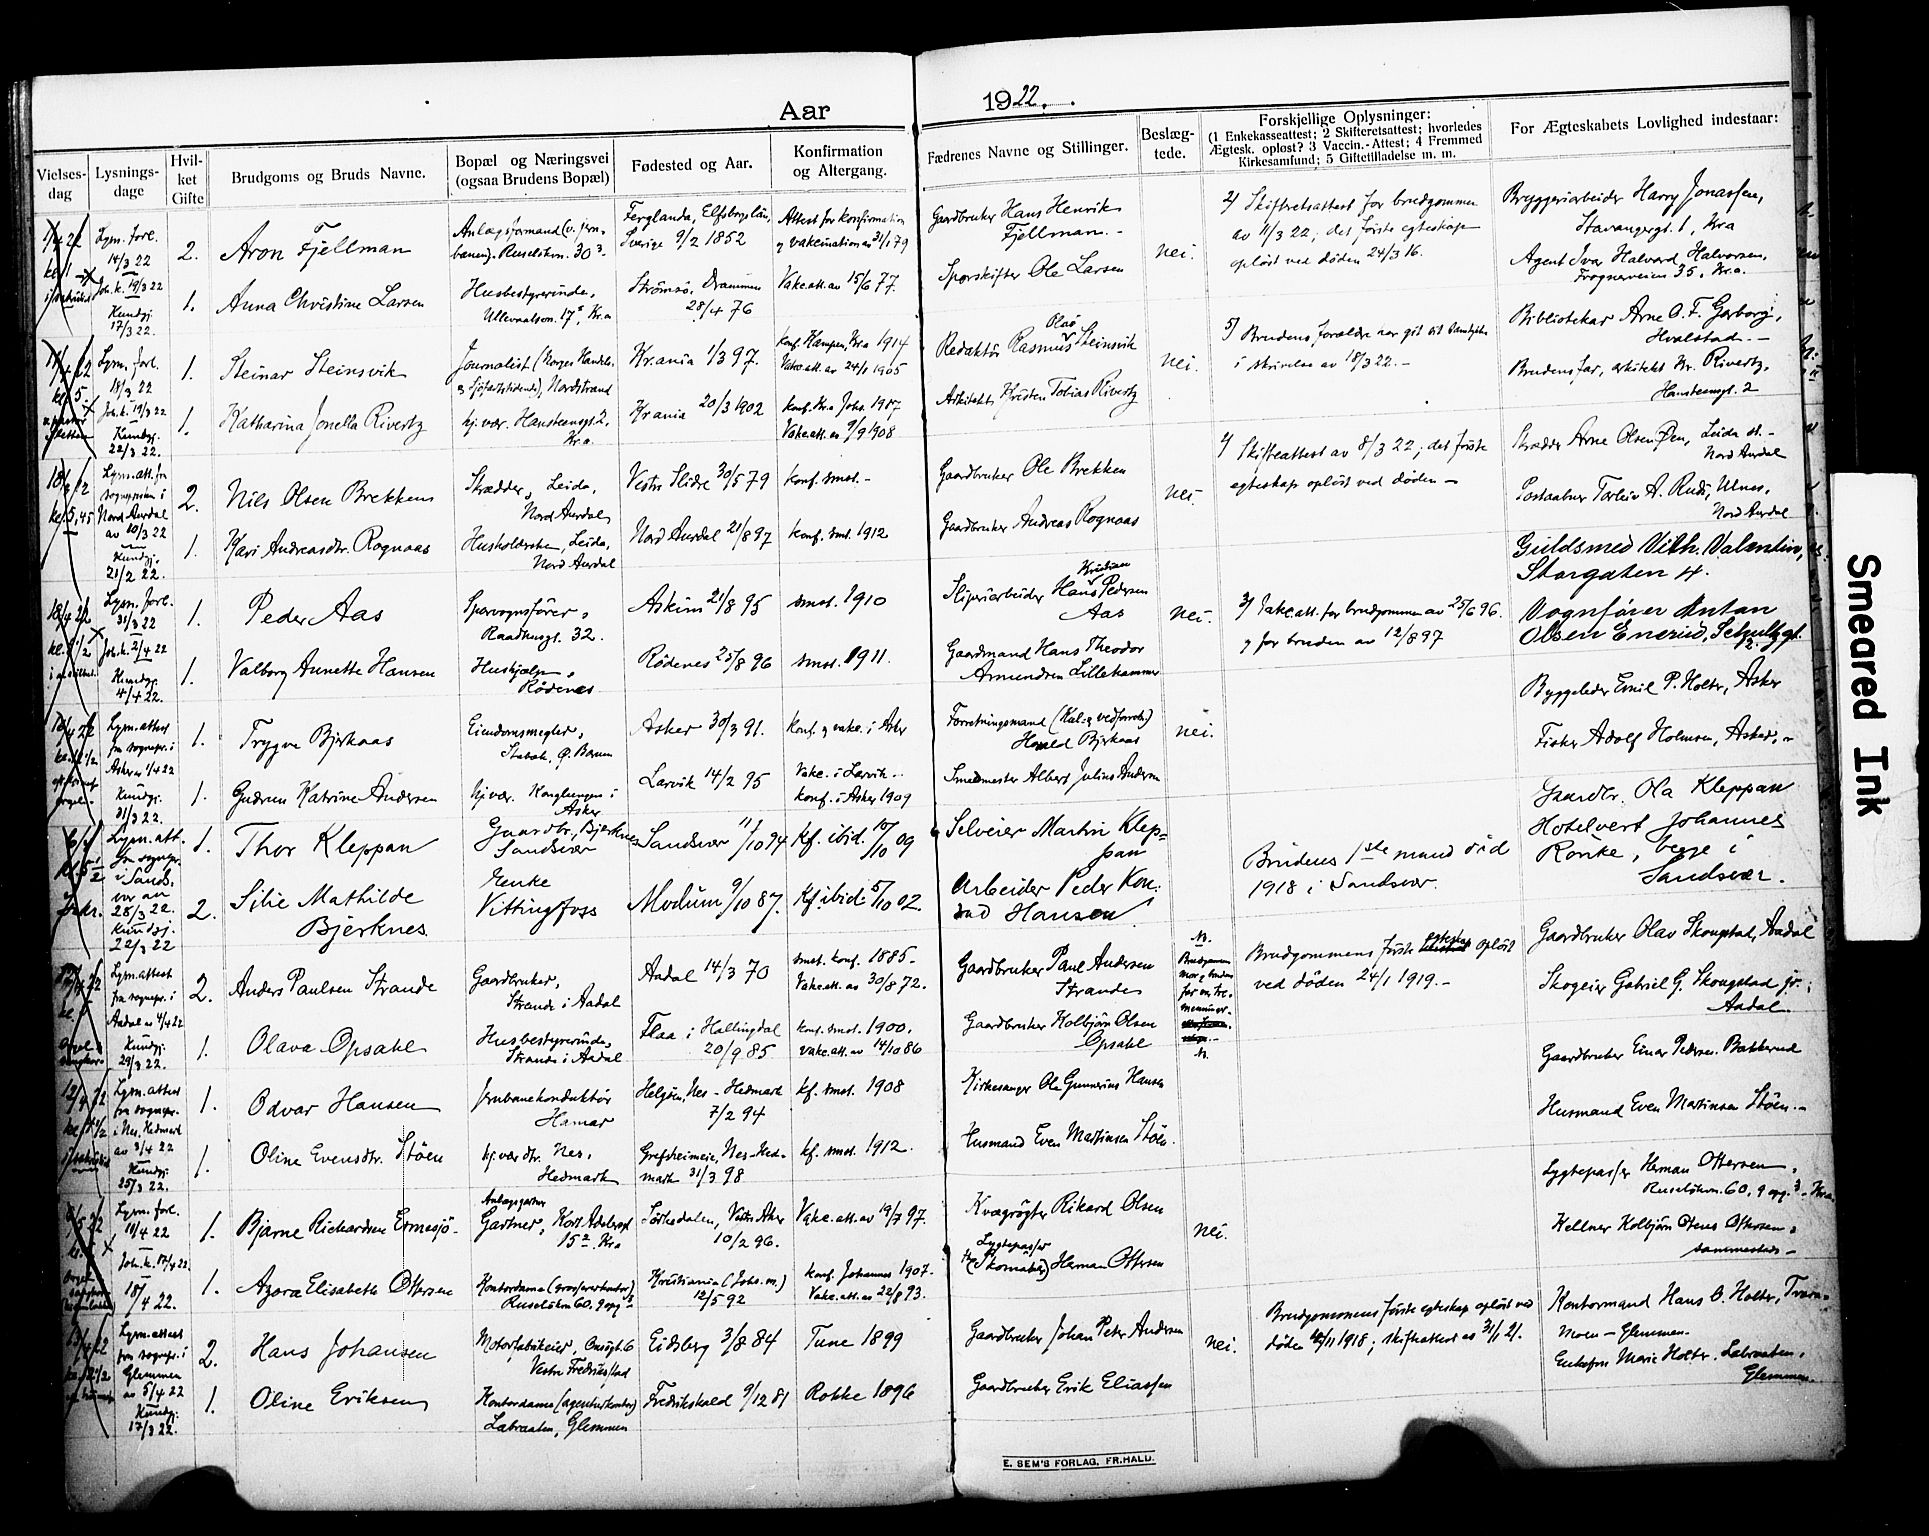 Aar
1922.
Vielses-
dag
Lysnings-
dage
Hvil-
ket
Gifte
Brudgoms og Bruds Navne.
Bopæl og Næringsvei
(ogsaa Brudens Bopæl)
Fødested og Aar.
Konfirmation
og Altergang.
Fædrenes Navne og Stillinger.
Beslæg-
tede.
Forskjellige Oplysninger:
(1 Enkekasseattest; 2 Skifteretsattest; hvorledes
Ægtesk. opløst? 3 Vaccin.-Attest; 4 Fremmed
Kirkesamfund; 5 Giftetilladelse m. m.
For Ægteskabets Lovlighed indestaar:
Lysn. forl.
14/3 22
Joh. k. 19/3 22
Kundgj.
17/3 22.
2.
Aron Fjellman
Anlægsformand (v. jern-
banen). Ruseløkvn. 30³
Ferglanda, Elfsborgslän,
Sverige 9/2 1852
Attest for konfirmation
og vakcination av 31/1 79
Gaardbruker Hans Henrik
Fjellman. -
nei.
2) Skifteretsattest for brudgommen
av 11/3 22; det første egteskap
opløst ved døden 24/3 16.
Bryggeriarbeider Harry Jonassen,
Stavangergt. 1, Kra
Agent Ivar Halvard Halvorsen,
Frognerveien 35, Kr.a.
1.
Anna Christine Larsen
Husbestyrerinde,
Ullevaalsvn. 17, Kr.a
Strømsø, Drammen
28/4 76
Vakc.att. av 15/6 77.
Sporskifter Ole Larsen
Lysn. forl.
18/3 22
Joh. k. 19/3 22
Kundgj.
22/3 22.
1.
Steinar Steinsvik
Journalist (Norges Handels-
og Sjøfartstidende), Nordstrand
Kr.ania 1/3 97.
konf. Kampen, Kr.a 1914
Vakc.att. av 24/1 1905
Redaktør Rasmus Olai Steinsvik
nei.
5) Brudens forældre har git sit samtykke
i skrivelse av 18/3 22. -
Bibliotekar Arne O. F. Garborg,
Hvalstad. -
Brudens far, arkitekt Kr. Rivertz,
Hansteensgt. 2
1.
Katharina Jonella Rivertz
hj. vær. Hansteensgt. 2,
Kr.a.
Kr.ania 20/3 1902
konf. Kr.a Johs. 1917
Vakc.att. av 9/9 1908
Arkitekt Kristen Tobias Rivertz
Lysn. att. fra
sognepr. i
Nord Aurdal
av 20/3 22
Kundgj.
21/2 22.
2.
Nils Olsen Brekken
Skrædder, Leida,
Nord Aurdal
Vestre Slidre 30/5 79
konf. smst. -
Gaardbruker Ole Brekken
nei.
Skifteattest av 8/3 22; det første
egteskap opløst ved døden -
Skrædder Arne Olsen Øen, Leida st. -
Nord Aurdal
Postaabner Torleiv A. Rudi, Ulnes,
Nord Aurdal
1.
Kari Andreasdtr. Rognaas
Husholderske, Leida,
Nord Aurdal
Nord Aurdal 21/8 97
konf. smst. 1912
Gaardbruker Andreas Rognaas
Lysn. forl.
31/3 22
Joh. k. 2/4 22
Kundgj.
4/4 22.
1.
Peder Aas
Sporvognsfører,
Raadhusgt. 32.
Askim 21/8 95
smst. 1910
Sliperiarbeider Hans Kristian Pedersen
Aas
nei.
3) Vakc.att. for brudgommen av 25/6 96.
og for bruden av 12/8 97
Guldsmed Vilh. Valentin,
Storgaten 4.
Vognfører Antan
Olsen Enerud, Schultzgt.
1.
Valborg Annette Hansen
Hushjælp,
Rødenes
Rødenes 25/8 96
smst. 1911.
Gaardmand Hans Theodor
Asmundsen Lillehammer
Lysn. attest
fra sognepr. i
Asker av 1/4 22
Kundgj.
31/3 22.
1.
Trygve Bjerkaas
Eiendomsmegler,
Stabæk, Ø. Bærum
Asker 30/3 91.
konf. og vakc. i Asker
Forretningsmand (Kul- og vedforretn.)
Harald Bjerkaas
nei.
Byggeleder Emil P. Holter, Asker
Fisker Adolf Holmsen, Asker. -
1.
Gudrun Katrine Andersen
hj. vær. Konglungen i
Asker
Larvik 14/2 95
Vakc. i Larvik -
konf. i Asker 1909
Smedmester Albert Julius Andersen
Lysn. att.
fra sognepr.
i Sands-
vær av
28/3 22.
Kundgj.
22/3 22
1.
Thor Kleppan
Gaardbr., Bjerknes
Sandsvær
Sandsvær 11/10 94
Kf. ibid. 10/10 09
Selveier Martin Klep-
pan
Brudens 1ste mand død
1918 i Sandsvær.
Gaardbr. Ola Kleppan
Hotelvert Johannes
Ronke, begge i
Sandsvær.
2.
Silie Mathilde
Bjerknes
Enke
Vittingfoss
Modum 9/10 87.
Kf. ibid. 5/10 02.
Arbeider Peder Kon-
rad Hansen
Lysn. attest
fra sognepr. i
Aadal av 4/4 22
Kundgj.
29/3 22.
2.
Anders Paulsen Strande
Gaardbruker,
Strande i Aadal
Aadal 14/3 70
smst. konf. 1885 -
Vakc.att. av 30/8 72.
Gaardbruker Paul Andersen
Strande
Brudgommens første egteskap opløst
ved døden 24/1 1919. -
Gaardbruker Olav Skougstad, Aadal
Skogeier Gabriel G. Skougstad jr. i
Aadal
1.
Olava Opsahl
Husbestyrerinde,
Strande i Aadal
Flaa i Hallingdal
20/9 85
konf. smst. 1900.
Vakc.att. av 14/10 86
Gaardbruker Kolbjørn Olsen
Opsahl
Lysn. attest
fra sognepr.
i Nes, Hedmark
av 3/4 22
Kundgj.
25/3 22.
1.
Odvar Hansen
Jernbanekonduktør
Hamar
Helgøen, Nes - Hedmark
7/2 94
kf. smst. 1908
Kirkesanger Ole Gunnerius Hansen
Gaardbruker Einar Pedersen Bakkerud
Husmand Even Martinsen Støen. -
1.
Oline Evensdtr. Støen
hj. vær. dtr. Nes,
Hedmark
Grefsheimeie, Nes - Hed-
mark 31/3 98
kf. smst. 1912.
Husmand Even Martinsen Støen.
Lysn. forl.
11/4 22
Joh. k. 17/4 22.
18/4 22.
1.
Bjarne Richardsen Ermesjø.
Anlægsgartner
Gartner, Kort Adelersgt
15², Kr.a
Sørkedalen, Vestre Aker
10/2 96.
Vakc.att. av 19/7 97.
Kvægrøgter Rikard Olsen
nei.
Lygtepasser Herman Ottersen,
Ruseløkvn. 60, opg. 3 - Kr.a.
Kellner Kolbjørn Otens Ottersen,
sammesteds -
1.
Azora Elisabeth Ottersen
Kontordame (grossererkontor)
Ruseløkvn 60, opg 3
Kristiania (Johs. m.)
12/5 92
konf. Johannes 1907.
Vakc.att. av 22/8 93.
Lygtepasser
(Skomaker) Herman Ottersen
Lysn. attest
fra sognepr. i
Glemmen
av 5/4 22
Kundgj.
17/3 22.
2.
Hans Johansen
Motorfabrikeier,
Vestre Fredrikstad
Eidsberg 3/8 84
Tune 1899
Gaardbruker Johan Peter Andersen
nei.
Brudgommens første egteskap opløst ved
døden 1918; skifteattest av 31/1 21.
Kontormand Hans O. Holter,
Glemmen.
Marie Holter, Labraaten,
Glemmen.
1.
Oline Eriksen
Kontordame (agenturkontor)
Labraaten, Glemmen
Fredrikshald 9/12 81
Rokke 1896
Gaardbruker Erik Eliassen
E. SEM'S FORLAG, FR.HALD.
Smeared Ink